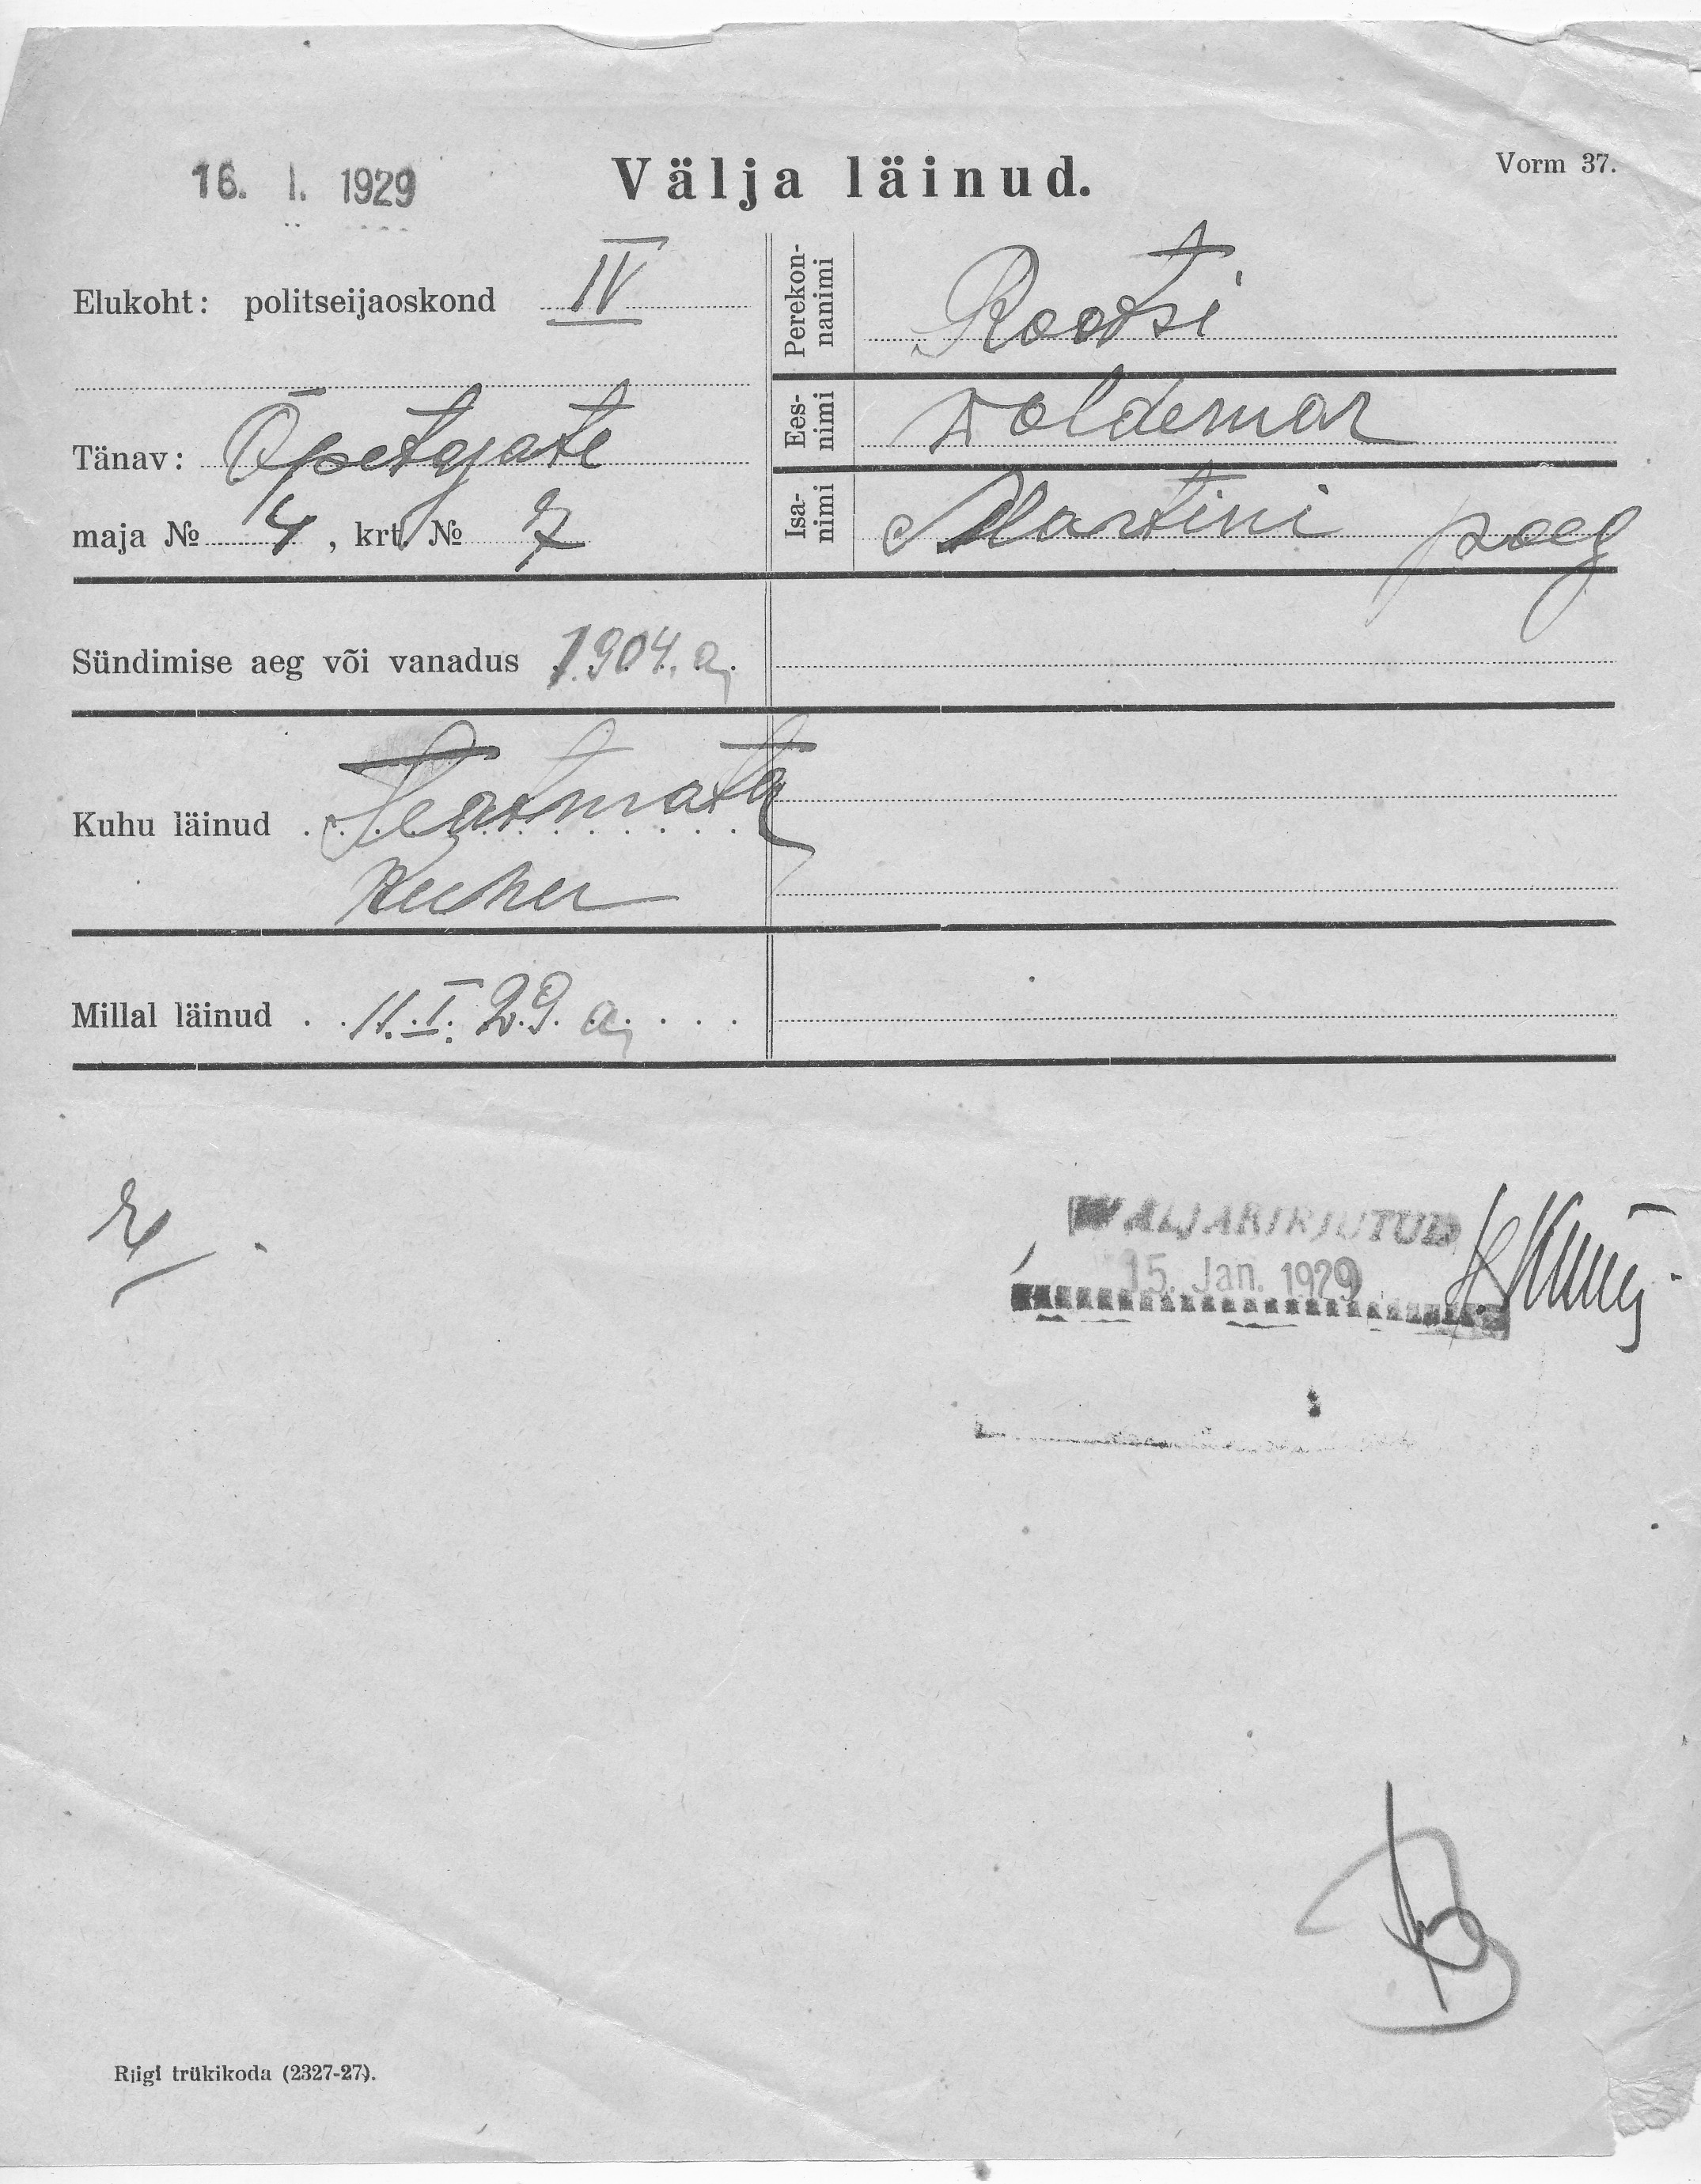 16. I. 1929
Välja läinud.
Vorm 37.
Elukoht: politseijaoskond IV
Tänav: Õpetajate
maja № 4, krt. № 7
Perekon-
nanimi
Rootsi
Ees-
nimi
Voldemar
Isa-
nimi
Martini poeg
Sündimise aeg või vanadus 1904. a.
Kuhu läinud Teatmata
Millal läinud 11. I. 29. a.
WÄLJAKIRJUTUD
15. Jan. 1929
Riigi trükikoda (2327-27).